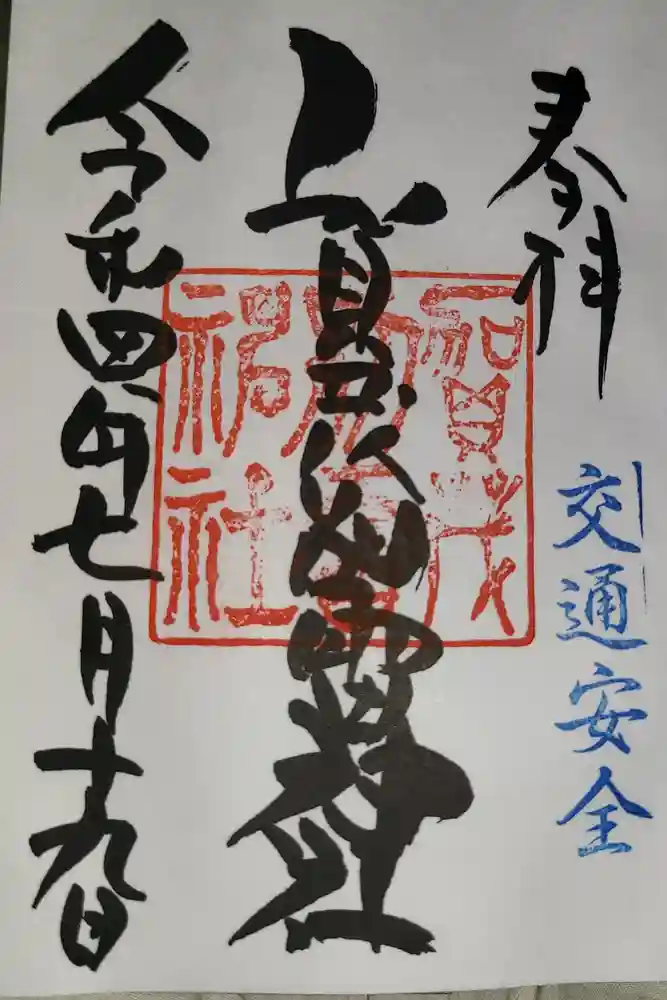 奉拝
交通安全
賀茂別雷神社
令和四年七月十九日
賀茂
神社